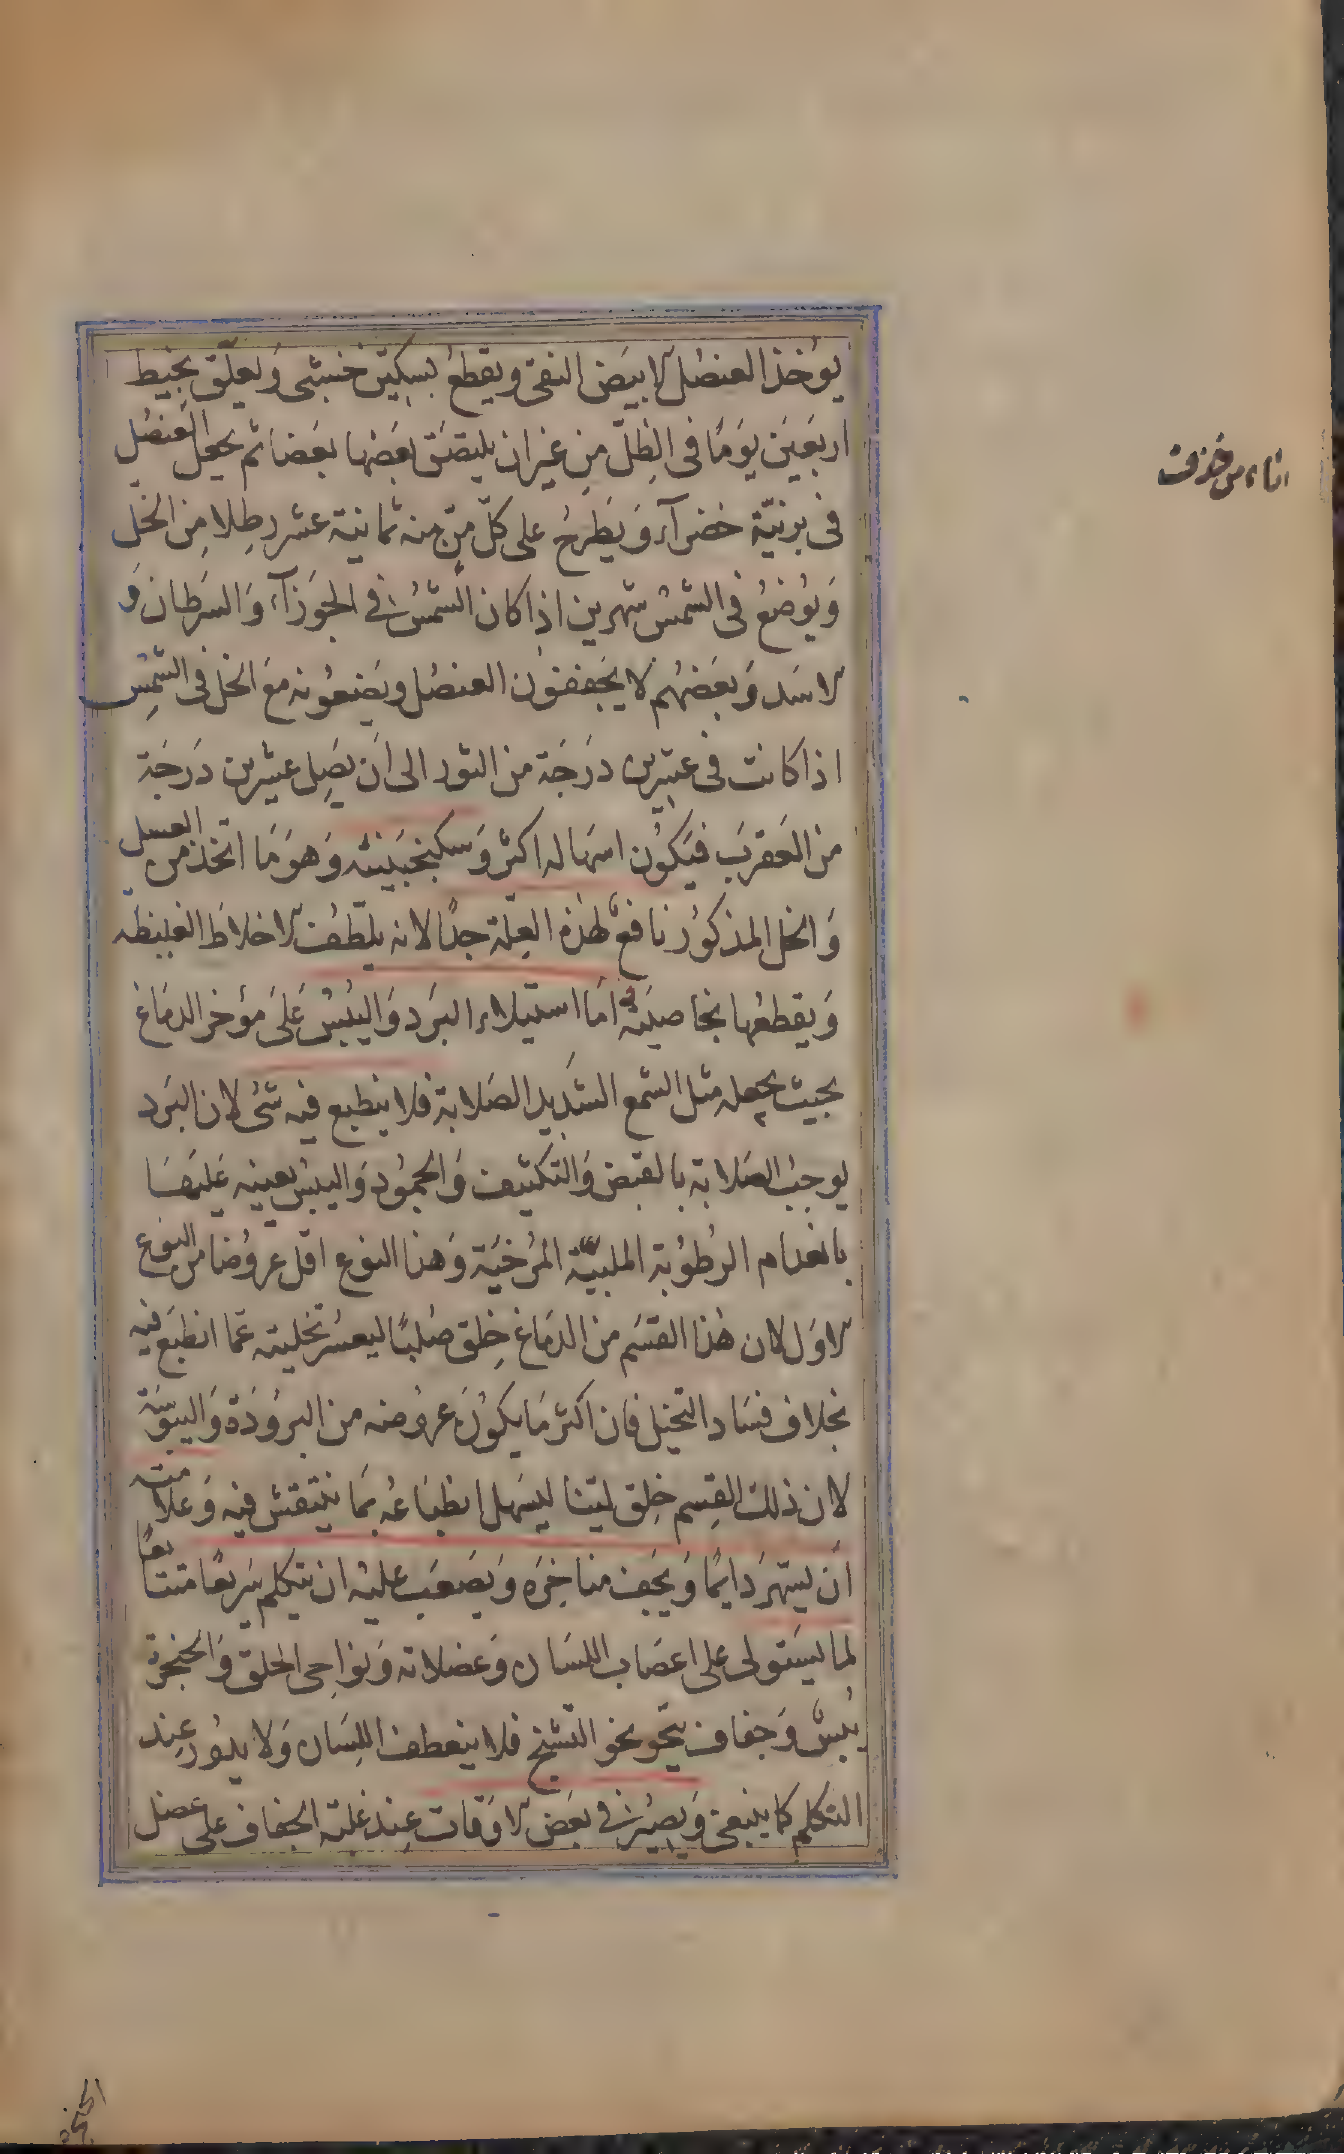 يوُخذ العنصُل الابيَض النقى ويقطعُ بسكيّن خشبى وَيعلّق بخيط
اربعَين يوَمًا فى الظِلّ مِن غيران يلتصَق بعَضها بعَضا ثم يجعل العنصُل
فى برنيّة خضرآء وَيطَرحُ على كلّ منّ منه ثمانية عشر رطِلا مِن الخل
وَيوُضعُ فى الشمسُ شهرين اذا كان الشمسُ فى الجوَزآء وَالسَرطان وَ
الاسَد وَبعَضهُم لا يجَففوُن العنصُل ويضَعوُنه معَ الخل فى الشمِسُ
اذا كانت فى عشرين درَجَة من الثور الى اَن يصَِل عشِرين درَجَة
من العَقربَ فيَكوُن اسهَاله اكثر وَسكنجَبينه وَهوَمَا اتخذ من العسل
وَالخل المذكوُر نافعٌ لهٰذه العِلّة جدًا لانه يلّطفُ الاخلاط الغليظه
وَيقطعُها بخاصيَتهُ اَمَا استيلاء البرَد وَاليُبسُ عَلىَ مؤخر الدمَاغ
بحيث يجعله مثل الشمع الشدِيد الصَلابة فلا ينطبع فيه شئ لان البرَد
يوجبُ الصَلابة بالقبَض وَالتكثيف وَالجموُد وَاليبسُ يعينه عَليهَا
بانعدام الرطوُبة المليّنة المُرخيَة وَهذا النوع اقل عروُضا من النوع
الاوَل لان هٰذا القسَم من الدمَاغ خِلق صُلبًا ليعسُر تخليته عمّا انطبَع فيه
بخلاف فسَاد التخيل فان اكثر مَا يكوُن عروُضه من البروُدَة وَاليبوُسَة
لان ذلك القِسم خِلق ليّنا ليسَهل انطبَاعهُ بمَا ينتقش فيه وَعلامته
اَن يسهَر دَايمًا وَيجَف مناخِرَه وَيصَعبَ عليْه ان يتكلم سَريعًا متتابعًا
لما يسَتولى على اعصَاب اللسَان وَعضلاته وَنواحِى الحلق وَالحنجرة
يُبسٌ وَجفاف ينحو نحو التشنج فلا ينعطف اللِسَان وَلا يدوُر عِند
التكلم كما ينبغى وَيصِيرُ فى بعَض الاوَقات عِند غلبة الجفاف على عضل
اناء من خزف
الحنجرة